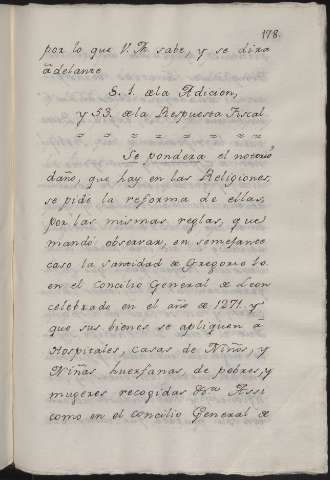 178.
por lo que V. A. sabe, y se dira
adelante
S. 1. de la Adicion,
y 53. de la Respuesta Fiscal
Se pondera el notorio
daño, que hay en las Religiones,
se pide la reforma de ellas,
por las mismas reglas, que
mandó observar, en semejante
caso la Santidad de Gregorio 10.
en el Concilio General de Leon
celebrado en el año de 1271. y
que sus bienes se apliquen à
Hospitales, Casas de Niños, y
Niñas huerfanas, de pobres, y
mugeres recogidas &ra Assi
como en el Concilio General de